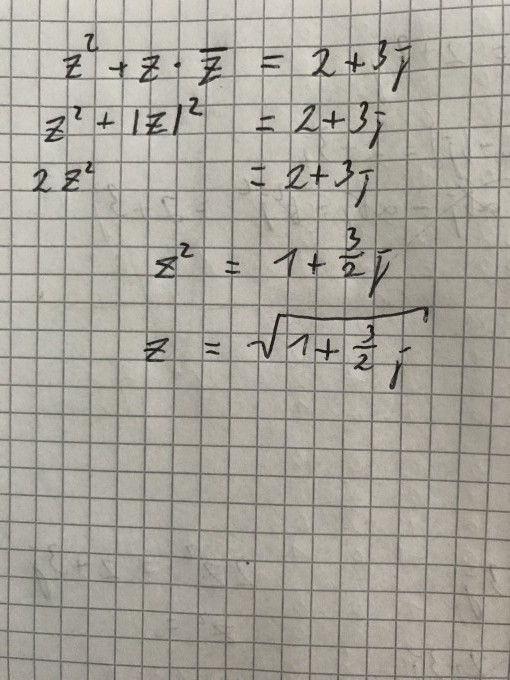 z² + z · z̅ = 2 + 3j
z² + |z|² = 2 + 3j
2 z² = 2 + 3j
z² = 1 + 3/2 j
z = √(1 + 3/2 j)